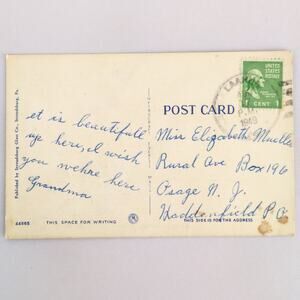 Published by Stroudsburg Glass Co., Stroudsburg, Pa.
et is beautifull
upe here, I wish
you wehre here
Grandma
44665
THIS SPACE FOR WRITING
POST CARD
UNITED STATES POSTAGE
1 CENT 1
P.M.
1948
Miss Elizabeth Mueller
Rural Ave Box 196
Osage N. J.
Haddenfield P.O.
THIS SIDE IS FOR THE ADDRESS